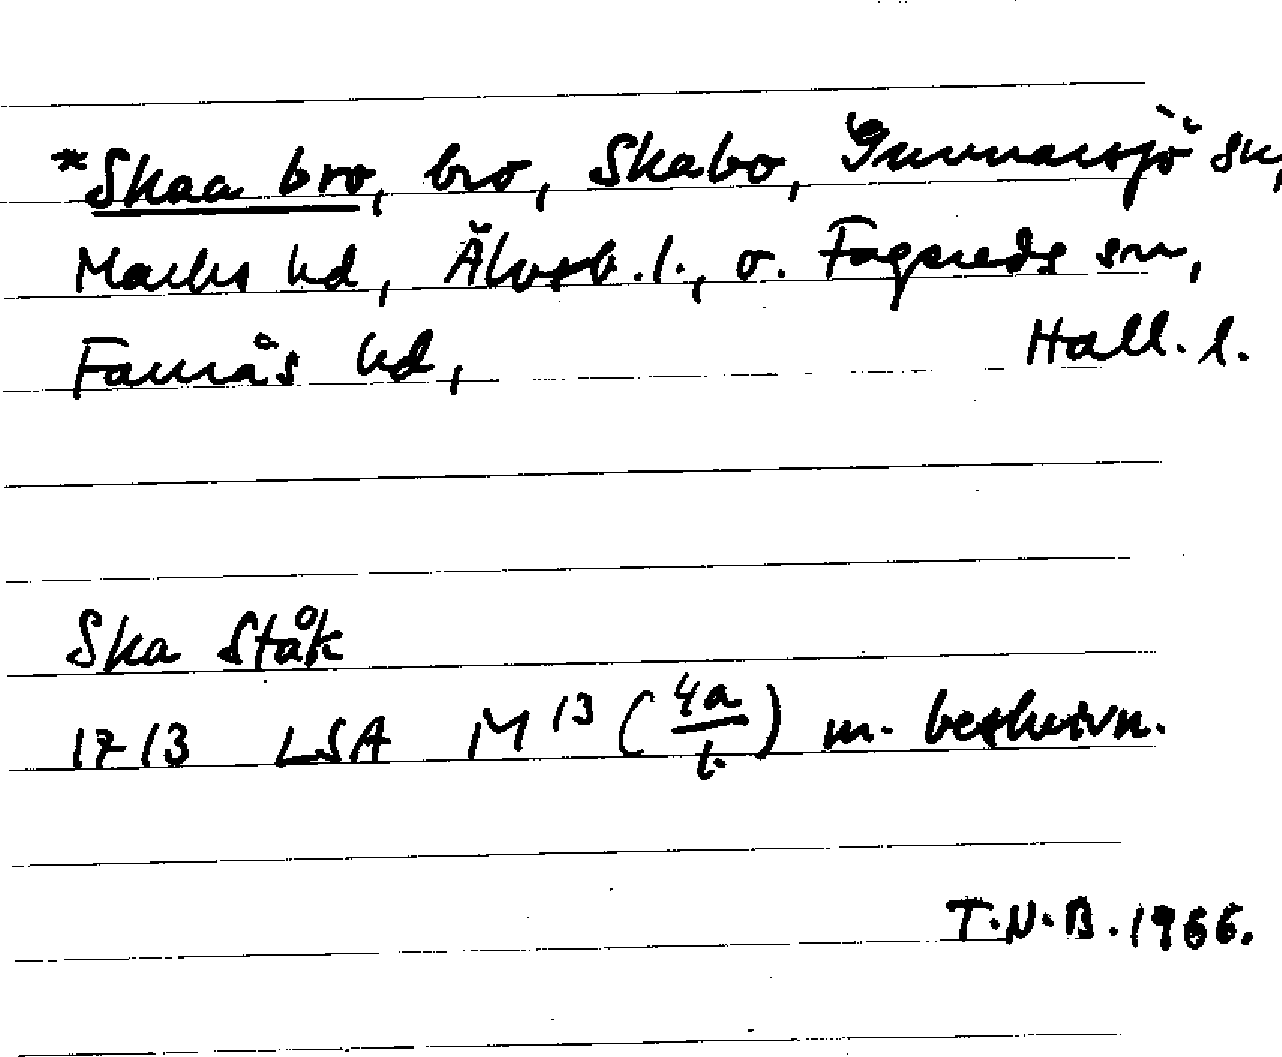 *Skaa bro, bro, Skabo, Gunnarsjö sn,
Marks hd, Älvsb. l., o. Fagereds sn,
Faurås hd, Hall. l.
Ska Ståk
1713 LSA M 13 (4a/1.) m. beskrivn.
T.N.B. 1966.